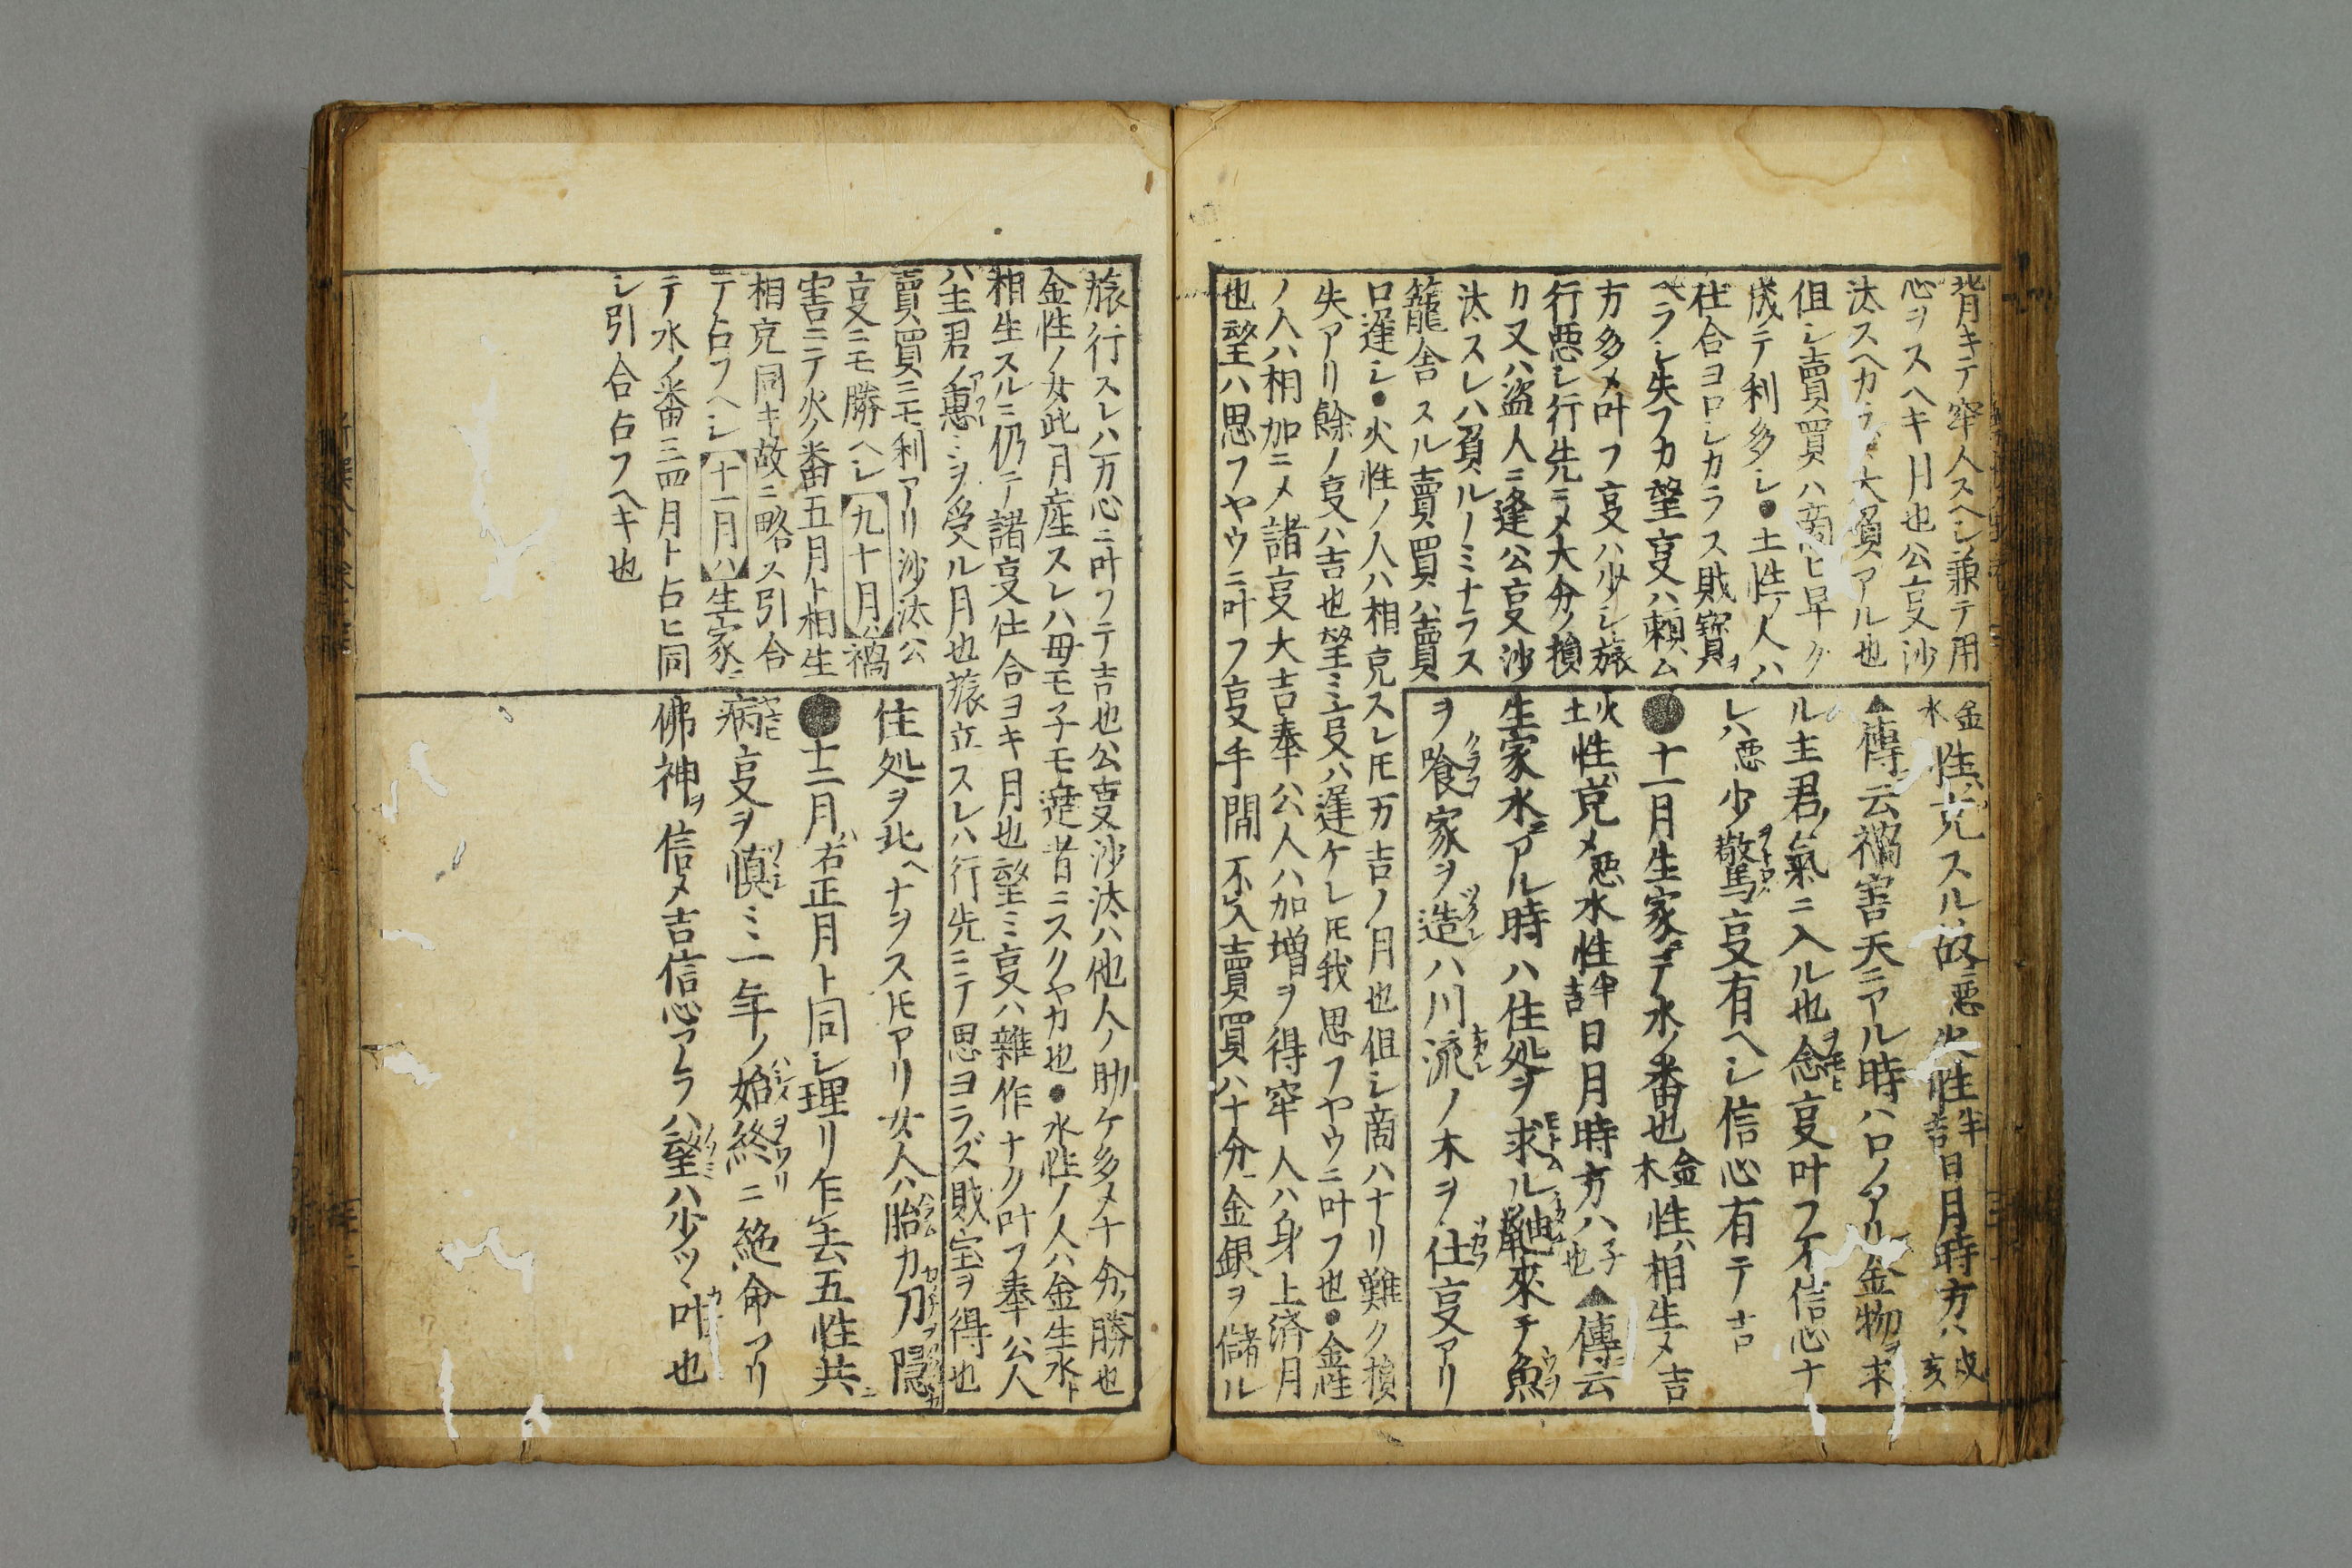 背キテ窂人スヘシ兼テ用
心ヲスヘキ月也公㕝沙
汰スヘカラ大負アル也
但シ賣買ハ商ヒ早ク
成テ利多シ●土性ノ人ハ
仕合ヨロシカラス財寳ヲ
ヘラシ失フカ望㕝ハ頼ム
方多〆叶フ㕝ハ少シ旅
行悪シ行先ニ〆大分ノ損
カ又ハ盗人ニ逢公㕝沙
汰スレハ負ルノミナラス
籠舎スル賣買ハ賣
口遅シ●火性ノ人ハ相克スレ𪜈万吉ノ月也但シ商ハナリ難ク損
失アリ餘ノ㕝ハ吉也望ミ㕝ハ遅ケレ𪜈我思フヤウニ叶フ也●金性
ノ人ハ相加ニ〆諸㕝大吉奉公人ハ加増ヲ得窂人ハ身上済月
也望ハ思フヤウニ叶フ㕝手間不入賣買ハ十分金銀ヲ儲ル
金水性ハ克スル故ニ悪火性半吉日月時方ハ戌亥
▲傳云禍害天ニアル時ハロノアリ金物ヲ求
ル主君ノ氣ニ入ル也念㕝叶フ不信心ナ
レハ悪少驚㕝有ヘシ信心有テ吉
●十一月生家ニテ水ノ番也金木性ハ相生〆吉
火土性ハ克〆悪水性半吉日月時方ハ子也▲傳云
生家水ニアル時ハ住処ヲ求ル來テ魚
ヲ喰家ヲ造ハ川流ノ木ヲ仕㕝アリ
旅行スレハ万心ニ叶フテ吉也公㕝沙汰ハ他人ノ助ケ多〆十分ノ勝也
金性ノ女此月産スレハ母モ子モ違者ニスクヤカ也●水性ノ人ハ金生水ト
相生スルニ仍テ諸㕝仕合ヨキ月也望ミ㕝ハ雜作ナク叶フ奉公人
ハ主君ノ惠ミヲ受ル月也旅立スレハ行先ニテ思ヨラズ財宝ヲ得也
賣買ニモ利アリ沙汰公
㕝ニモ勝ヘシ九十月ハ禍
害ニテ火ノ番五月ト相生
相克同キ故ニ略ス引合
テ占フヘシ十一月ハ生家ニ
テ水ノ番三四月ト占ヒ同
シ引合占フヘキ也
住処ヲ北ヘナヲス𪜈アリ女人ハ胎カ刀隠
●十二月ハ右正月ト同シ理リ乍去五性共ニ
病㕝ヲ慎ミ一年ノ始終ニ絶命アリ
佛神ヲ信〆吉信心アラハ望ハ少ツヽ叶也